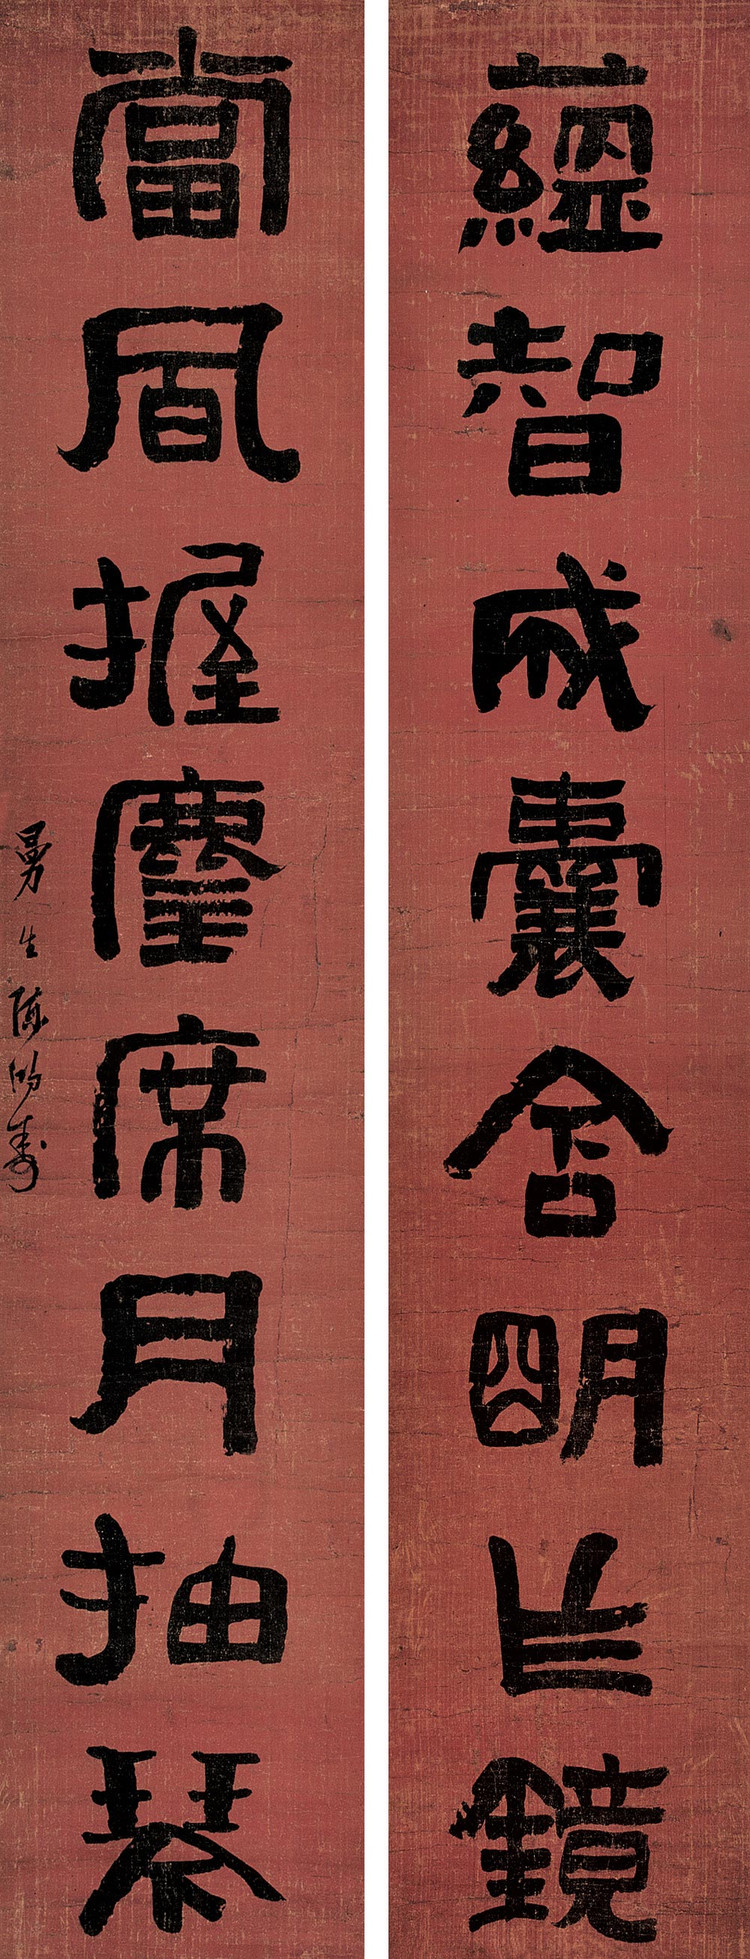 蘊智成囊含明乍鏡
當風握麈席月抽琴
曼生陳鴻壽